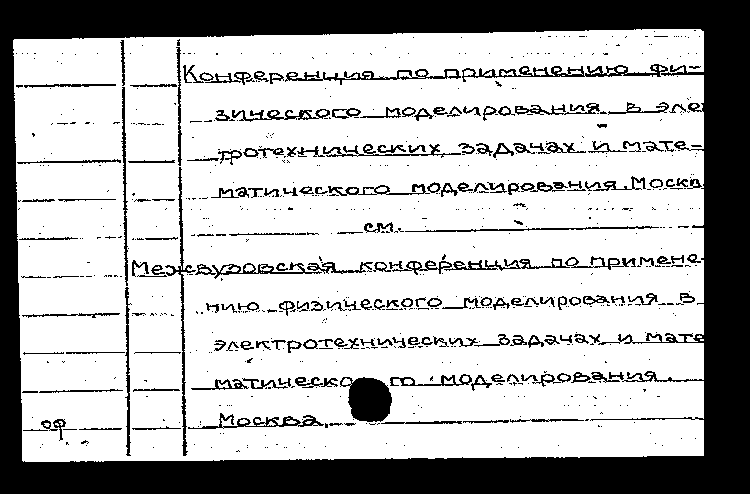 Конференция по применению фи-
зического моделирования в элек
тротехнических задачах и мате-
матического моделирования. Москв
см.
Межвузовская конференция по примене-
нию физического моделирования в
электротехнических задачах и мате
матического моделирования.
Москва,
оф